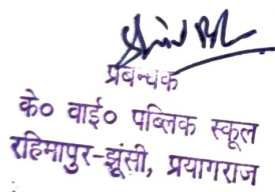 प्रबन्धक
के० वाई० पब्लिक स्कूल
रहिमापुर-झूंसी, प्रयागराज